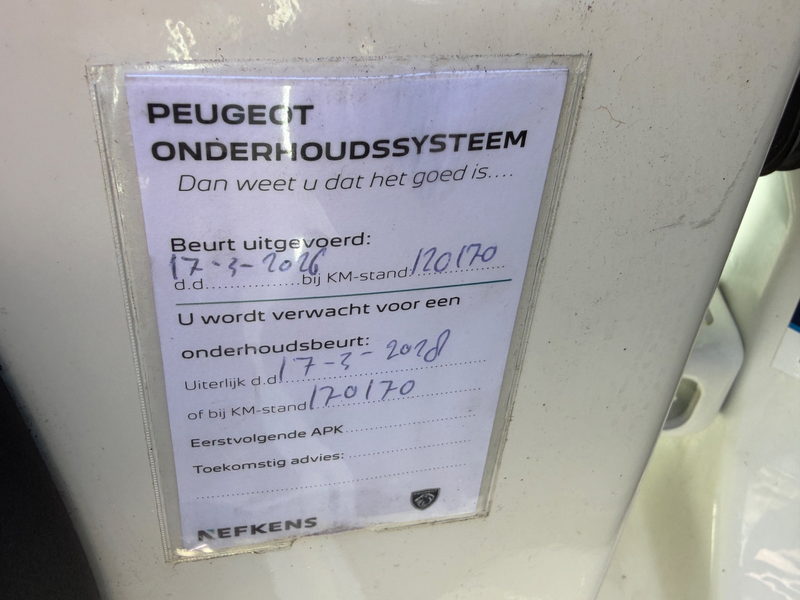 PEUGEOT
ONDERHOUDSSYSTEEM
Dan weet u dat het goed is....
Beurt uitgevoerd:
d.d. 17-3-2026 bij KM-stand: 120170
U wordt verwacht voor een
onderhoudsbeurt:
Uiterlijk d.d. 17-3-2028
of bij KM-stand 170170
Eerstvolgende APK
Toekomstig advies:
NEFKENS